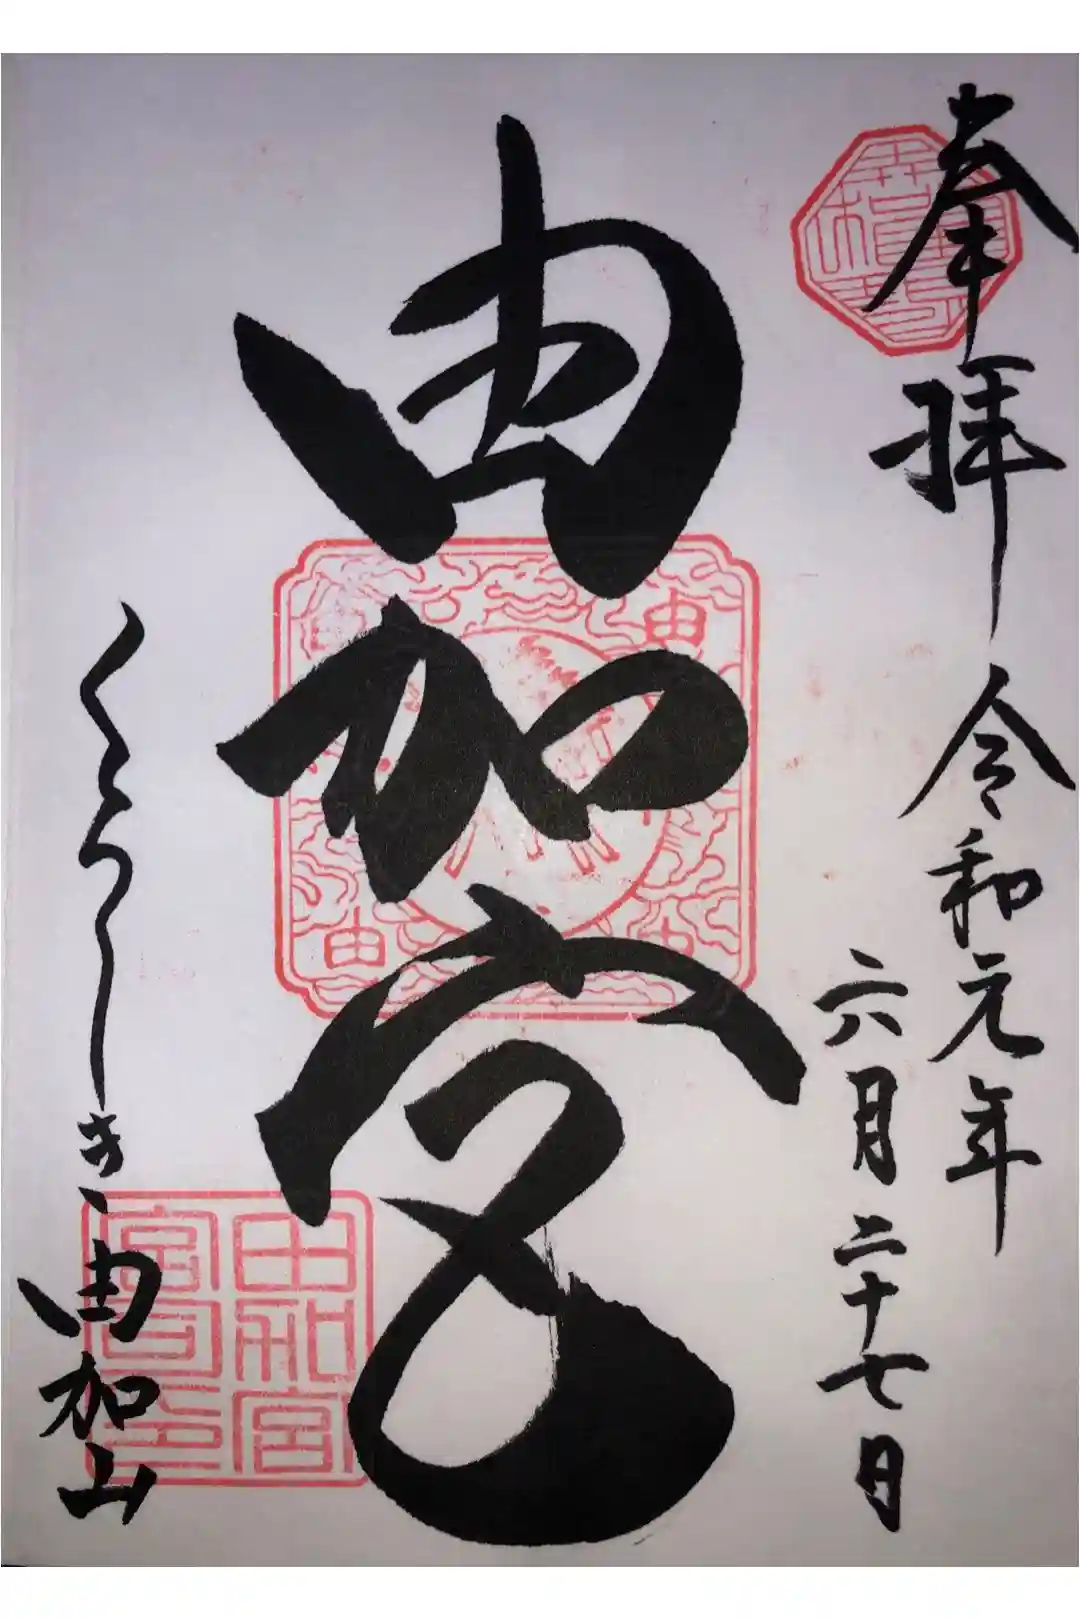 奉拝 令和元年
六月二十七日
由加宮
くらしき 由加山
由
由
由加宮